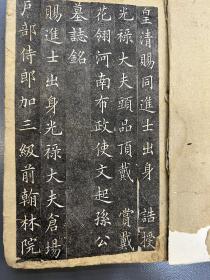 皇清賜同進士出身　誥授
光祿大夫頭品頂戴　賞戴
花翎河南布政使文起孫公
墓誌銘
賜進士出身光祿大夫倉場
戶部侍郎加三級前翰林院